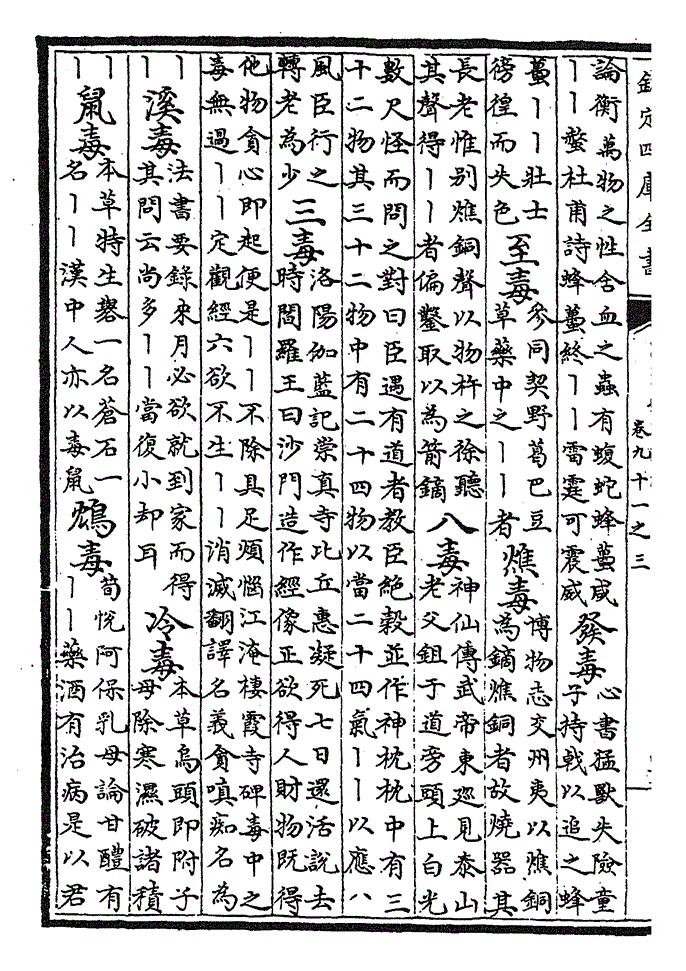 欽定四庫全書
卷九十一之三
論衡萬物之性含血之蟲有蝮蛇蜂蠆咸
丨丨螫杜甫詩蜂蠆終丨丨雷霆可震威
發毒
心書猛獸失險童
子持戟以追之蜂
蠆丨丨壯士
徬徨而失色
至毒
參同契野葛巴豆
草藥中之丨丨者
燋毒
博物志交州夷以燋銅
為鏑燋銅者故燒器其
長老惟別燋銅聲以物杵之徐聽
其聲得丨丨者偏鑿取以為箭鏑
八毒
神仙傳武帝東廵見泰山
老父鉏于道旁頭上白光
數尺怪而問之對曰臣遇有道者教臣絕穀並作神枕枕中有三
十二物其三十二物中有二十四物以當二十四氣丨丨以應八
風臣行之
轉老為少
三毒
洛陽伽藍記崇真寺比丘惠凝死七日還活說去
時閻羅王曰沙門造作經像正欲得人財物既得
他物貪心即起便是丨丨不除具足煩惱江淹棲霞寺碑毒中之
毒無過丨丨定觀經六欲不生丨丨消滅翻譯名義貪嗔痴名為
丨
丨
溪毒
法書要錄來月必欲就到家而得
其問云尚多丨丨當復小却耳
冷毒
本草烏頭即附子
母除寒濕破諸積
丨
丨
鼠毒
本草特生礜一名蒼石一
名丨丨漢中人亦以毒鼠
鴆毒
荀悅阿保乳母論甘醴有
丨丨藥酒有治病是以君